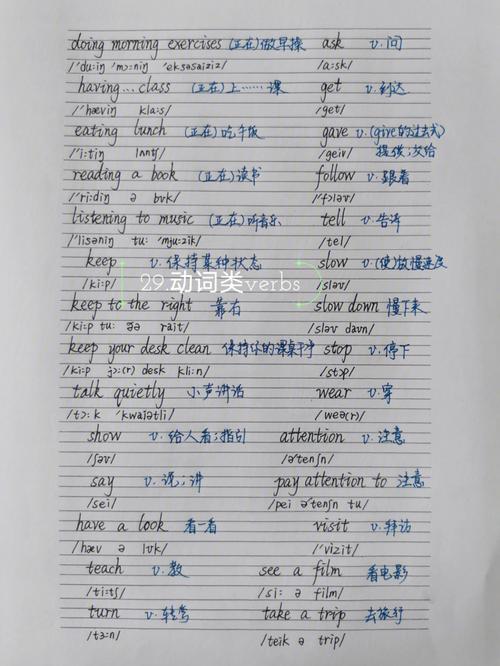 doing morning exercises (正在)做早操 ask v.问
/'du:iŋ 'mɔ:niŋ 'eksəsaiziz/ /a:sk/
having...class (正在)上……课 get v.到达
/'hæviŋ kla:s/ /get/
eating lunch (正在)吃午饭 gave v.(give的过去式)
/'i:tiŋ lʌntʃ/ /geiv/ 提供;交给
reading a book (正在)读书 follow v.跟着
/'ri:diŋ ə bʊk/ /'fɔləʊ/
listening to music (正在)听音乐 tell v.告诉
/'lisəniŋ tu: 'mju:zik/ /tel/
keep v.保持某种状态 slow v.(使)放慢速度
29.动词类verbs
/ki:p/ /sləʊ/
keep to the right 靠右 slow down 慢下来
/ki:p tu: ðə rait/ /sləʊ daʊn/
keep your desk clean 保持你的课桌干净 stop v.停下
/ki:p jɔ:(r) desk kli:n/ /stɔp/
talk quietly 小声讲话 wear v.穿
/tɔ:k 'kwaiətli/ /weə(r)/
show v.给人看;指引 attention v.注意
/ʃəʊ/ /ə'tenʃn/
say v.说;讲 pay attention to 注意
/sei/ /pei ə'tenʃn tu/
have a look 看一看 visit v.拜访
/hæv ə lʊk/ /'vizit/
teach v.教 see a film 看电影
/ti:tʃ/ /si: ə film/
turn v.转弯 take a trip 去旅行
/tɜ:n/ /teik ə trip/